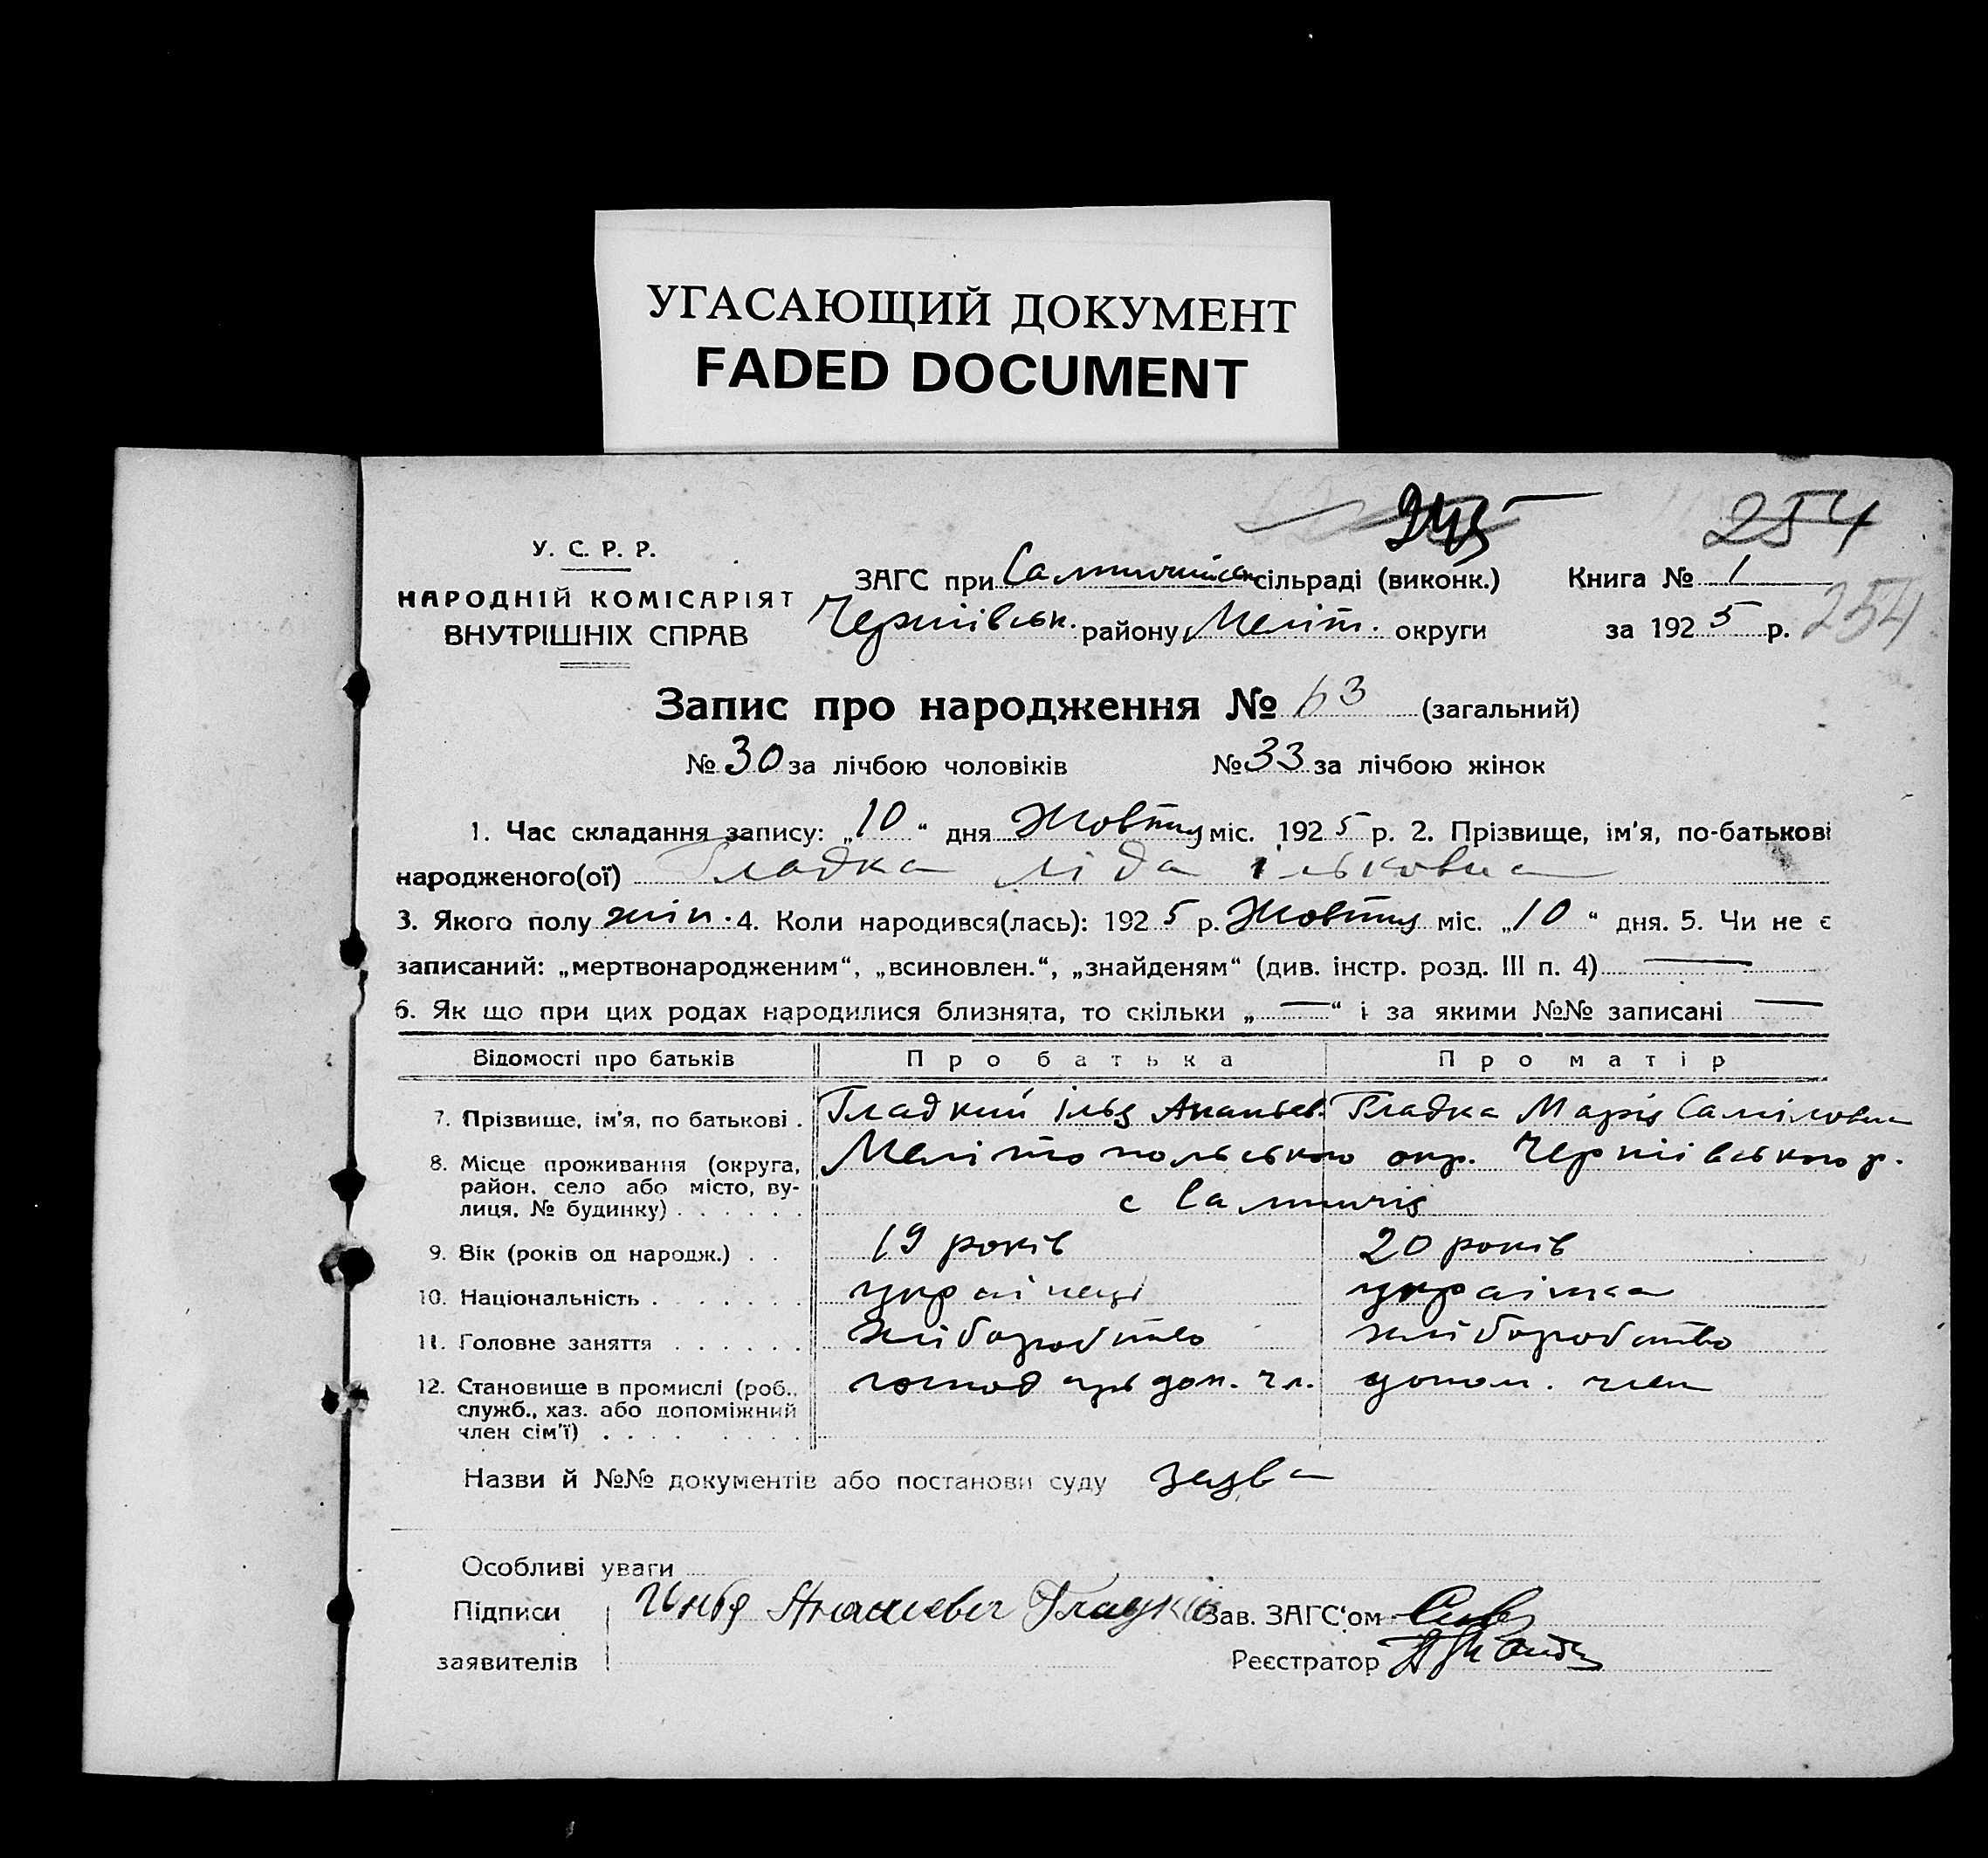 УГАСАЮЩИЙ ДОКУМЕНТ
FADED DOCUMENT
245 254
У. С. Р. Р.
НАРОДНІЙ КОМІСАРІЯТ
ВНУТРІШНІХ СПРАВ
ЗАГС при сільраді (виконк.) Книга № 1
Чернiївськ. району Меліт. округи за 1925 р. 254
Запис про народження № 63 (загальний)
№ 30 за лічбою чоловіків № 33 за лічбою жінок
1. Час складання запису: „10“ дня Жовтня міс. 1925 р. 2. Прізвище, ім'я, по-батькові
народженого(ої) Гладка Ліда Ільковна
3. Якого полу жін. 4. Коли народився(лась): 1925 р. Жовтня міс. „10“ дня. 5. Чи не є
записаний: „мертвонародженим“, „всиновлен.“, „знайденям“ (див. інстр. розд. III п. 4) —
6. Як що при цих родах народилися близнята, то скільки „—“ і за якими №№ записані —
Відомості про батьків Про батька Про матір
7. Прізвище, ім'я, по батькові . Гладкий Ілья Ананьев. Гладка Марія Самiловна
8. Місце проживання (округа, Мелітопольського окр. Чернiївського р.
район, село або місто, ву-
лиця, № будинку) . . . . . . с
9. Вік (років од народж.) . . 19 років 20 років
10. Національність . . . . . . українець українка
11. Головне заняття . . . . . . хліборобство хліборобство
12. Становище в промислі (роб., господ дом. чл. допом. член
служб., хаз. або допоміжний
член сім'ї) . . . . . . . .
Назви й №№ документів або постанови суду заява
Особливі уваги
Підписи Илья Ананиевич Гладкий Зав. ЗАГС'ом
заявителів Реєстратор